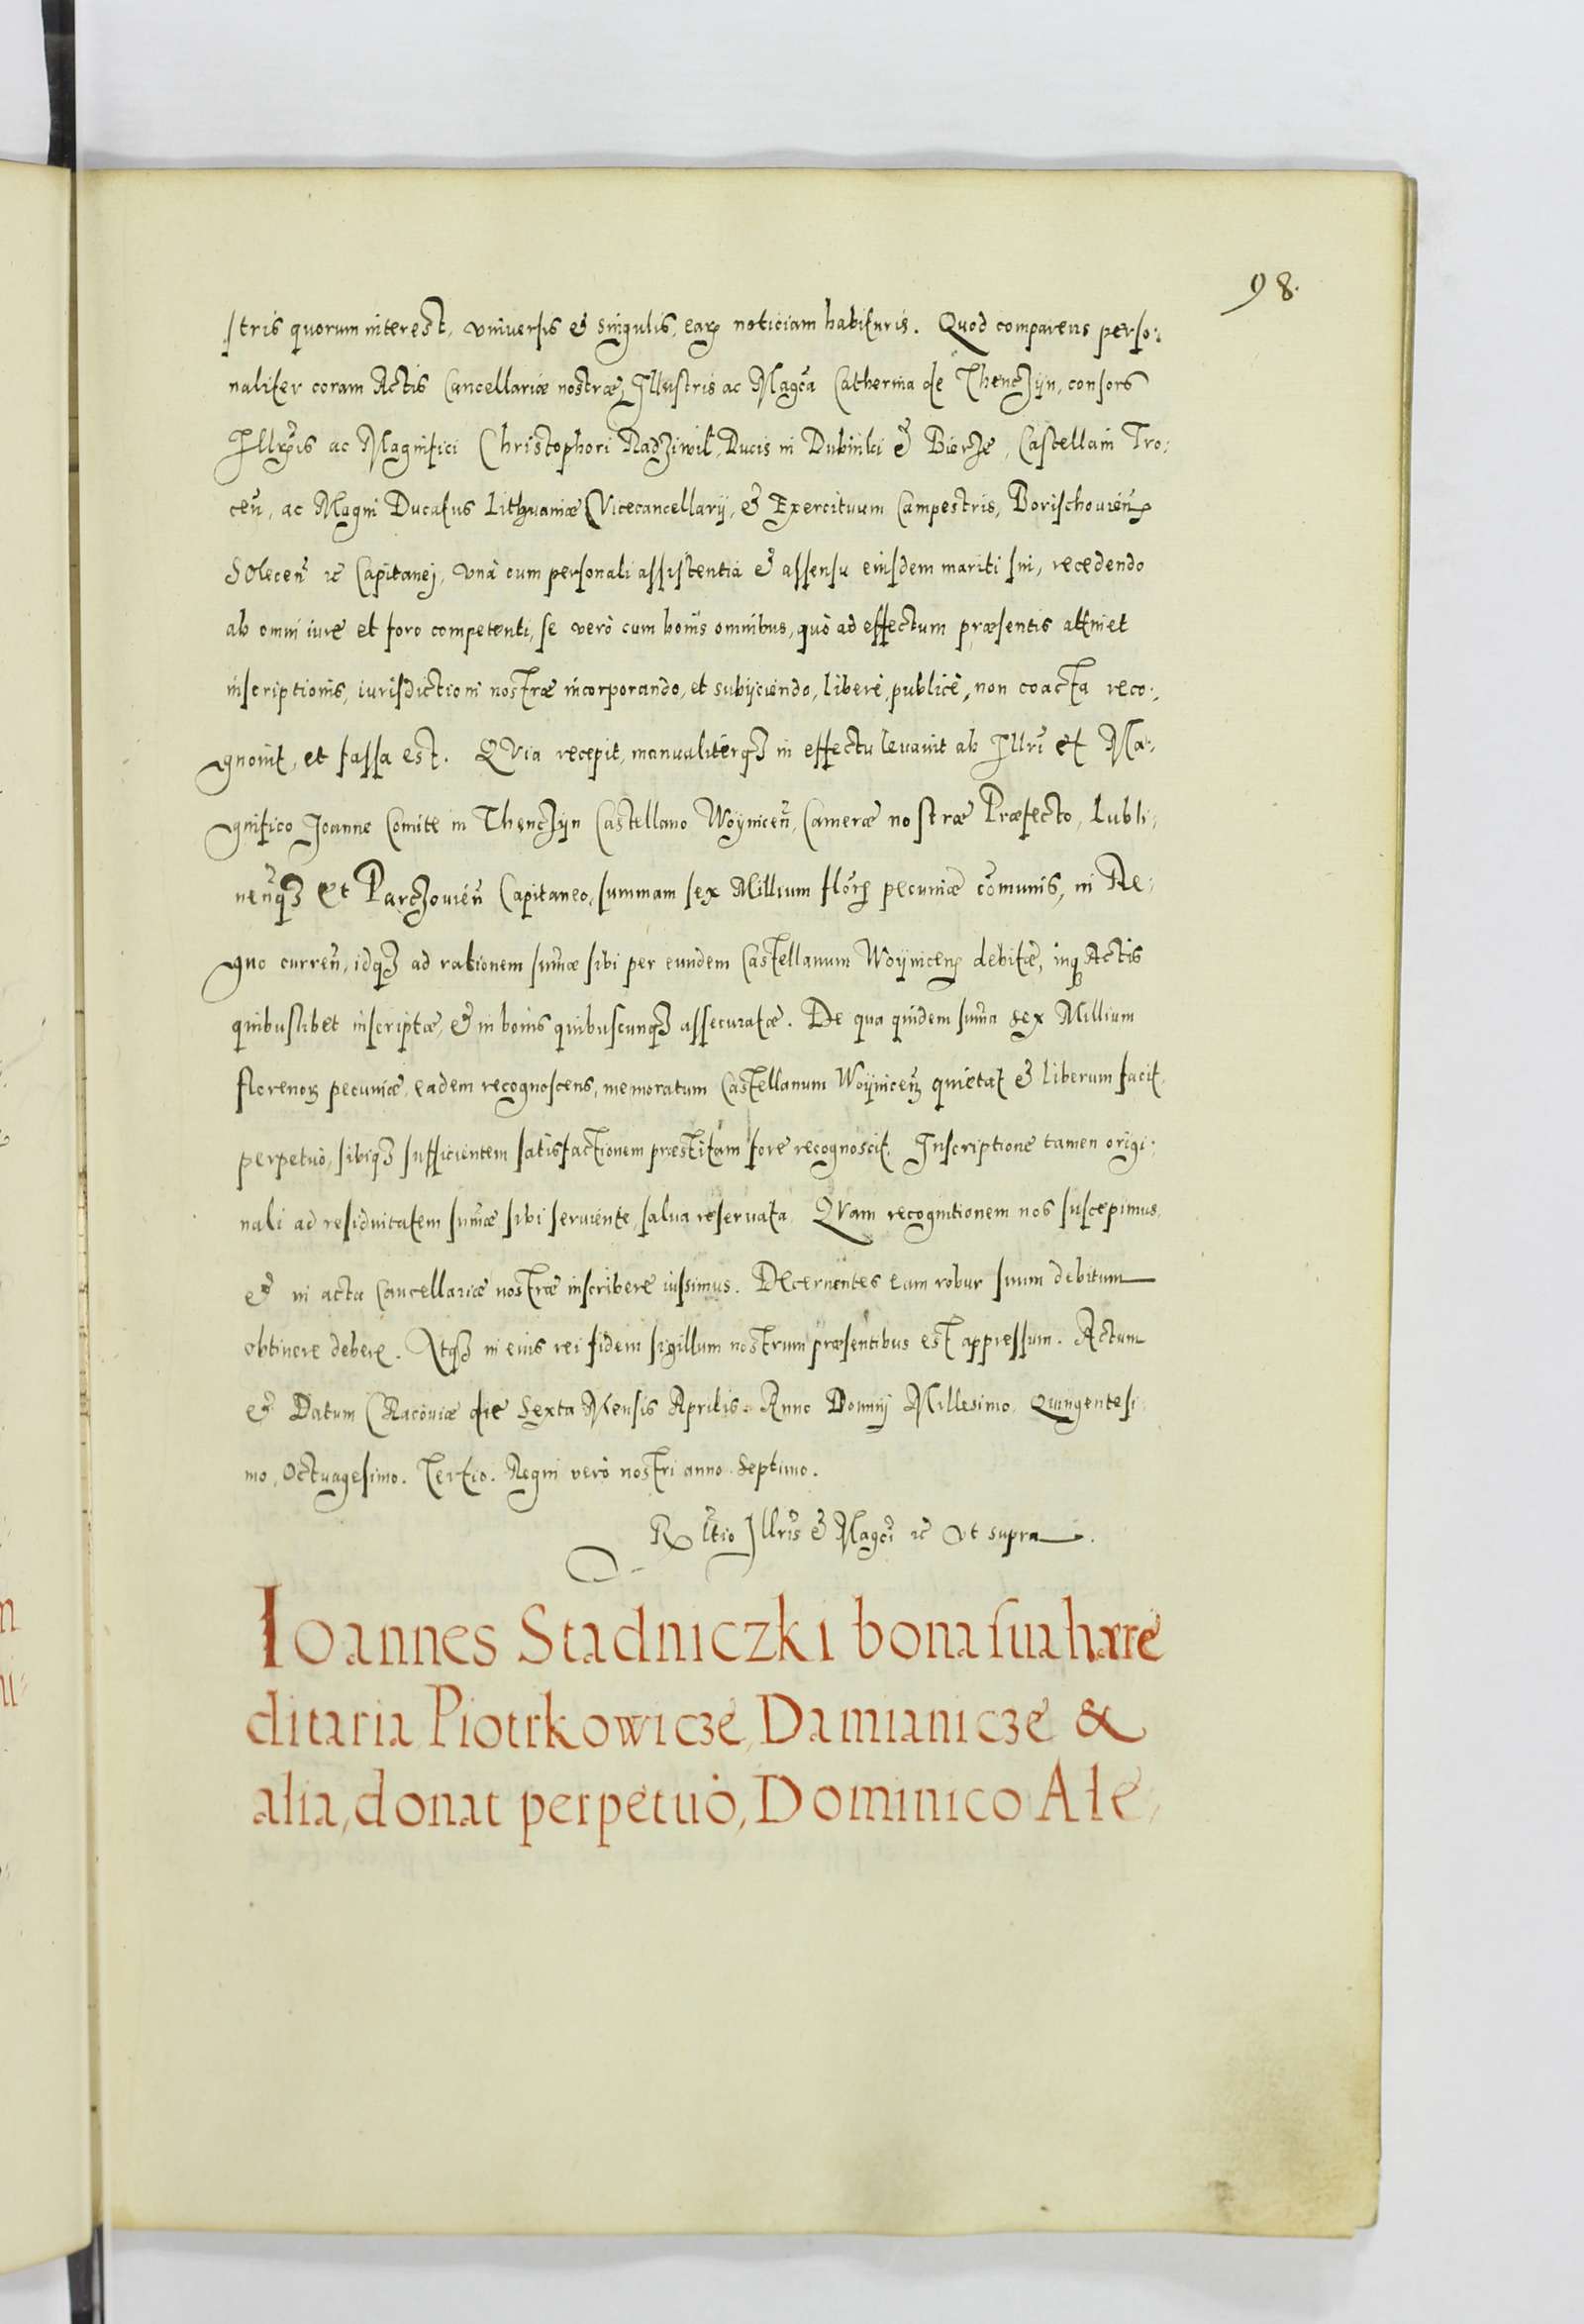 98.
stris quorum interest, vniuersis & singulis, earp noticiam habituris. Quod comparens perso:
naliter coram Actis Cancellariæ nostræ, Illustris ac Magca Catherina de Thenczijn, consors
Illris ac Magnifici Christophori Radziwil, Ducis in Dubinki & Bierze, Castellani Tro:
cen, ac Magni Ducatus Lithuaniæ Vicecancellarij, & Exercituum Campestris, Borischouien
SOlecen &c Capitanej, vna cum personali assistentia & assensu eiusdem mariti sui, recedendo
ab omni iure et foro competenti, se verò cum bonis omnibus, quò ad effectum præsentis attinet
inscriptionis, iurisdictioni nostræ incorporando, et subijciendo, liberè, publicè, non coacta reco:
gnouit, et fassa est. QVia recepit, manualiterq3 in effectu leuauit ab Illri et Ma:
gnifico Joanne Comite in Thenczijn Castellano Woijnicen, Cameræ nostræ Præfecto, Lubli:
nenq3 et Parczouien Capitaneo, summam sex Millium flor pecuniæ comunis, in Re:
gno curren, idq3 ad rationem sumæ sibi per eundem Castellanum Woijnicen debitæ, inq Actis
quibuslibet inscriptæ, & in bonis quibuscunq3 assecuratæ. De qua quidem suma sex Millium
florenor pecuniæ, eadem recognoscens, memoratum Castellanum Woijnicen quietat & liberum facit
perpetuò, sibiq3 sufficientem satisfactionem præstitam fore recognoscit. Inscriptione tamen origi:
nali ad residuitatem sumæ sibi seruiente, salua reseruata. QVam recognitionem nos suscepimus,
& in acta Cancellariæ nostræ inscribere iussimus. DEcernentes eam robur suum debitum
obtinere debere. Atq3 in eius rei fidem sigillum nostrum præsentibus est appressum. Actum
& Datum CRacouiæ die Sexta Mensis Aprilis. Anno Domnij Millesimo Quingentesi
mo, Octuagesimo. Tertio. Regni verò nostri anno Septimo.
Rltio Illris & Magci &c vt supra.
Ioannes Stadniczki bona sua hære
ditaria Piotrkowicze, Damianicze &
alia, donat perpetuò, Dominico Ale,